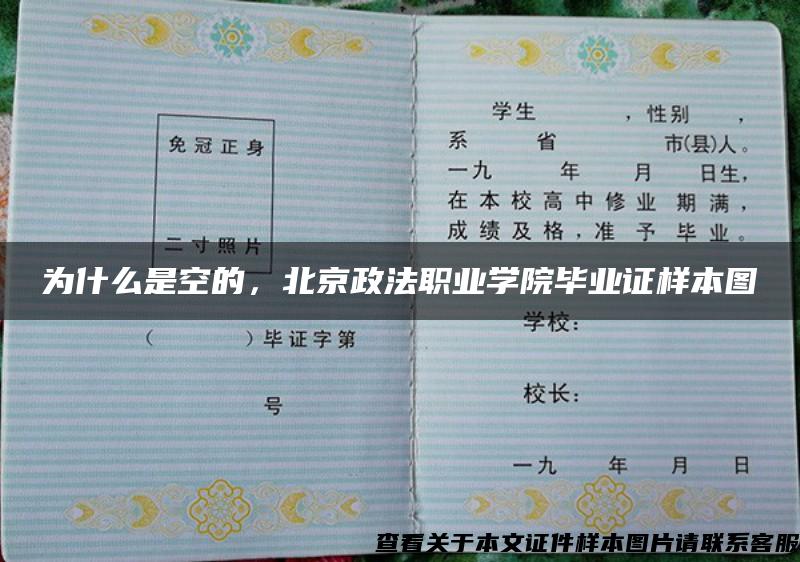 免冠正身
二寸照片
（ ）毕证字第
号
学生 ，性别 ，
系 省 市(县)人。
一九 年 月 日生，
在本校高中修业 期满，
成绩及格，准予毕业。
为什么是空的，北京政法职业学院毕业证样本图
学校：
校长：
一九 年 月 日
查看关于本文证件样本图片请联系客服